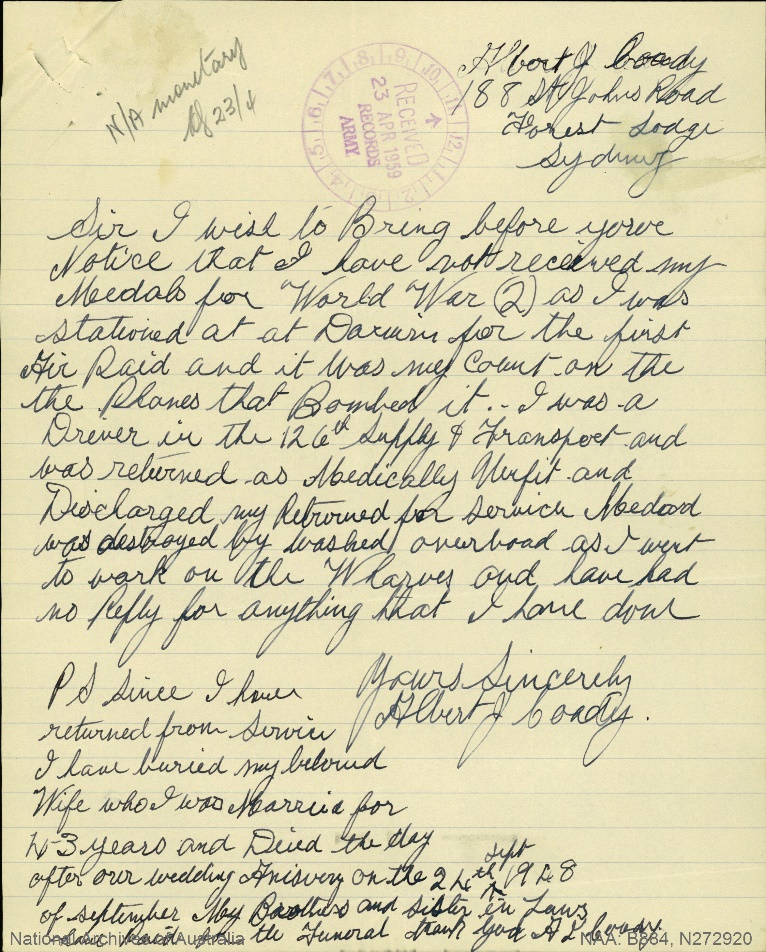 N/A monetary
23/4
RECEIVED
23 APR 1959
RECORDS
ARMY
4 5 6 7 8 9 10 11 12 1 2
Albert J Coady
188 St Johns Road
Forest Lodge
Sydney
Sir I wish to Bring before yowre
Notice that I have not received my
Medals for World War (2) as I was
stationed at at Darwin for the first
Air Raid and it was my Count on the
the Planes that Bombed it.. I was a
Driver in the 126th Supply & Transport and
was returned as Medically Unfit and
Discharged my Returned for service
was destroyed by washed overboad as I went
to work on the Wharves and have had
no Reply for anything that I have done
Yours Sincerely
Albert J Coady.
P S since I have
returned from Service
I have buried my beloved
Wife who I was Married for
43 years and Died the day
after our wedding on the 24th Sept 1948
of september My Brothers and sister in Laws
the Funeral thank you A J Coady.
National Archives of Australia
NAA: B884, N272920